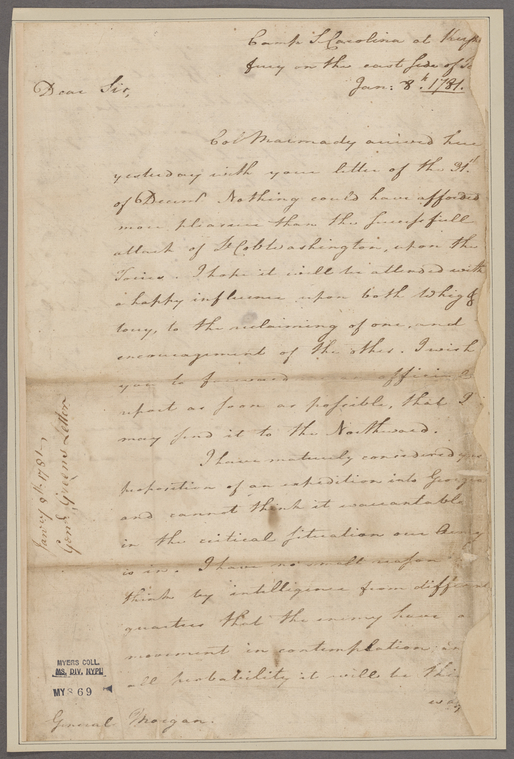 Camp S Carolina at Kings
ferry on the east side of
Jan: 8th 1781.
Dear Sir,
Col Marmady arrived here
yesterday with your letter of the 31st
of Decemr Nothing could have afforded
more pleasure than the successfull
attack of Lt Col Washington, upon the
Tories. I hope it will be attended with
a happy influence upon both Whig &
tory, to the reclaiming of one, and
encouragement of the other. I wish
you to forward an official
report as soon as possible, that I
may send it to the Northward.
I have maturely considered your
proposition of an expedition into Georgia
and cannot think it warrantable
in the critical situation our Army
is in. I have no small reason to
think by intelligence from different
quarters that the enemy have a
movement in contemplation; in
all probability it will be this
way
General Morgan.
Janry 8th 1781
Genl Greens Letter
MYERS COLL.
MS. DIV. NYPL
MY 869